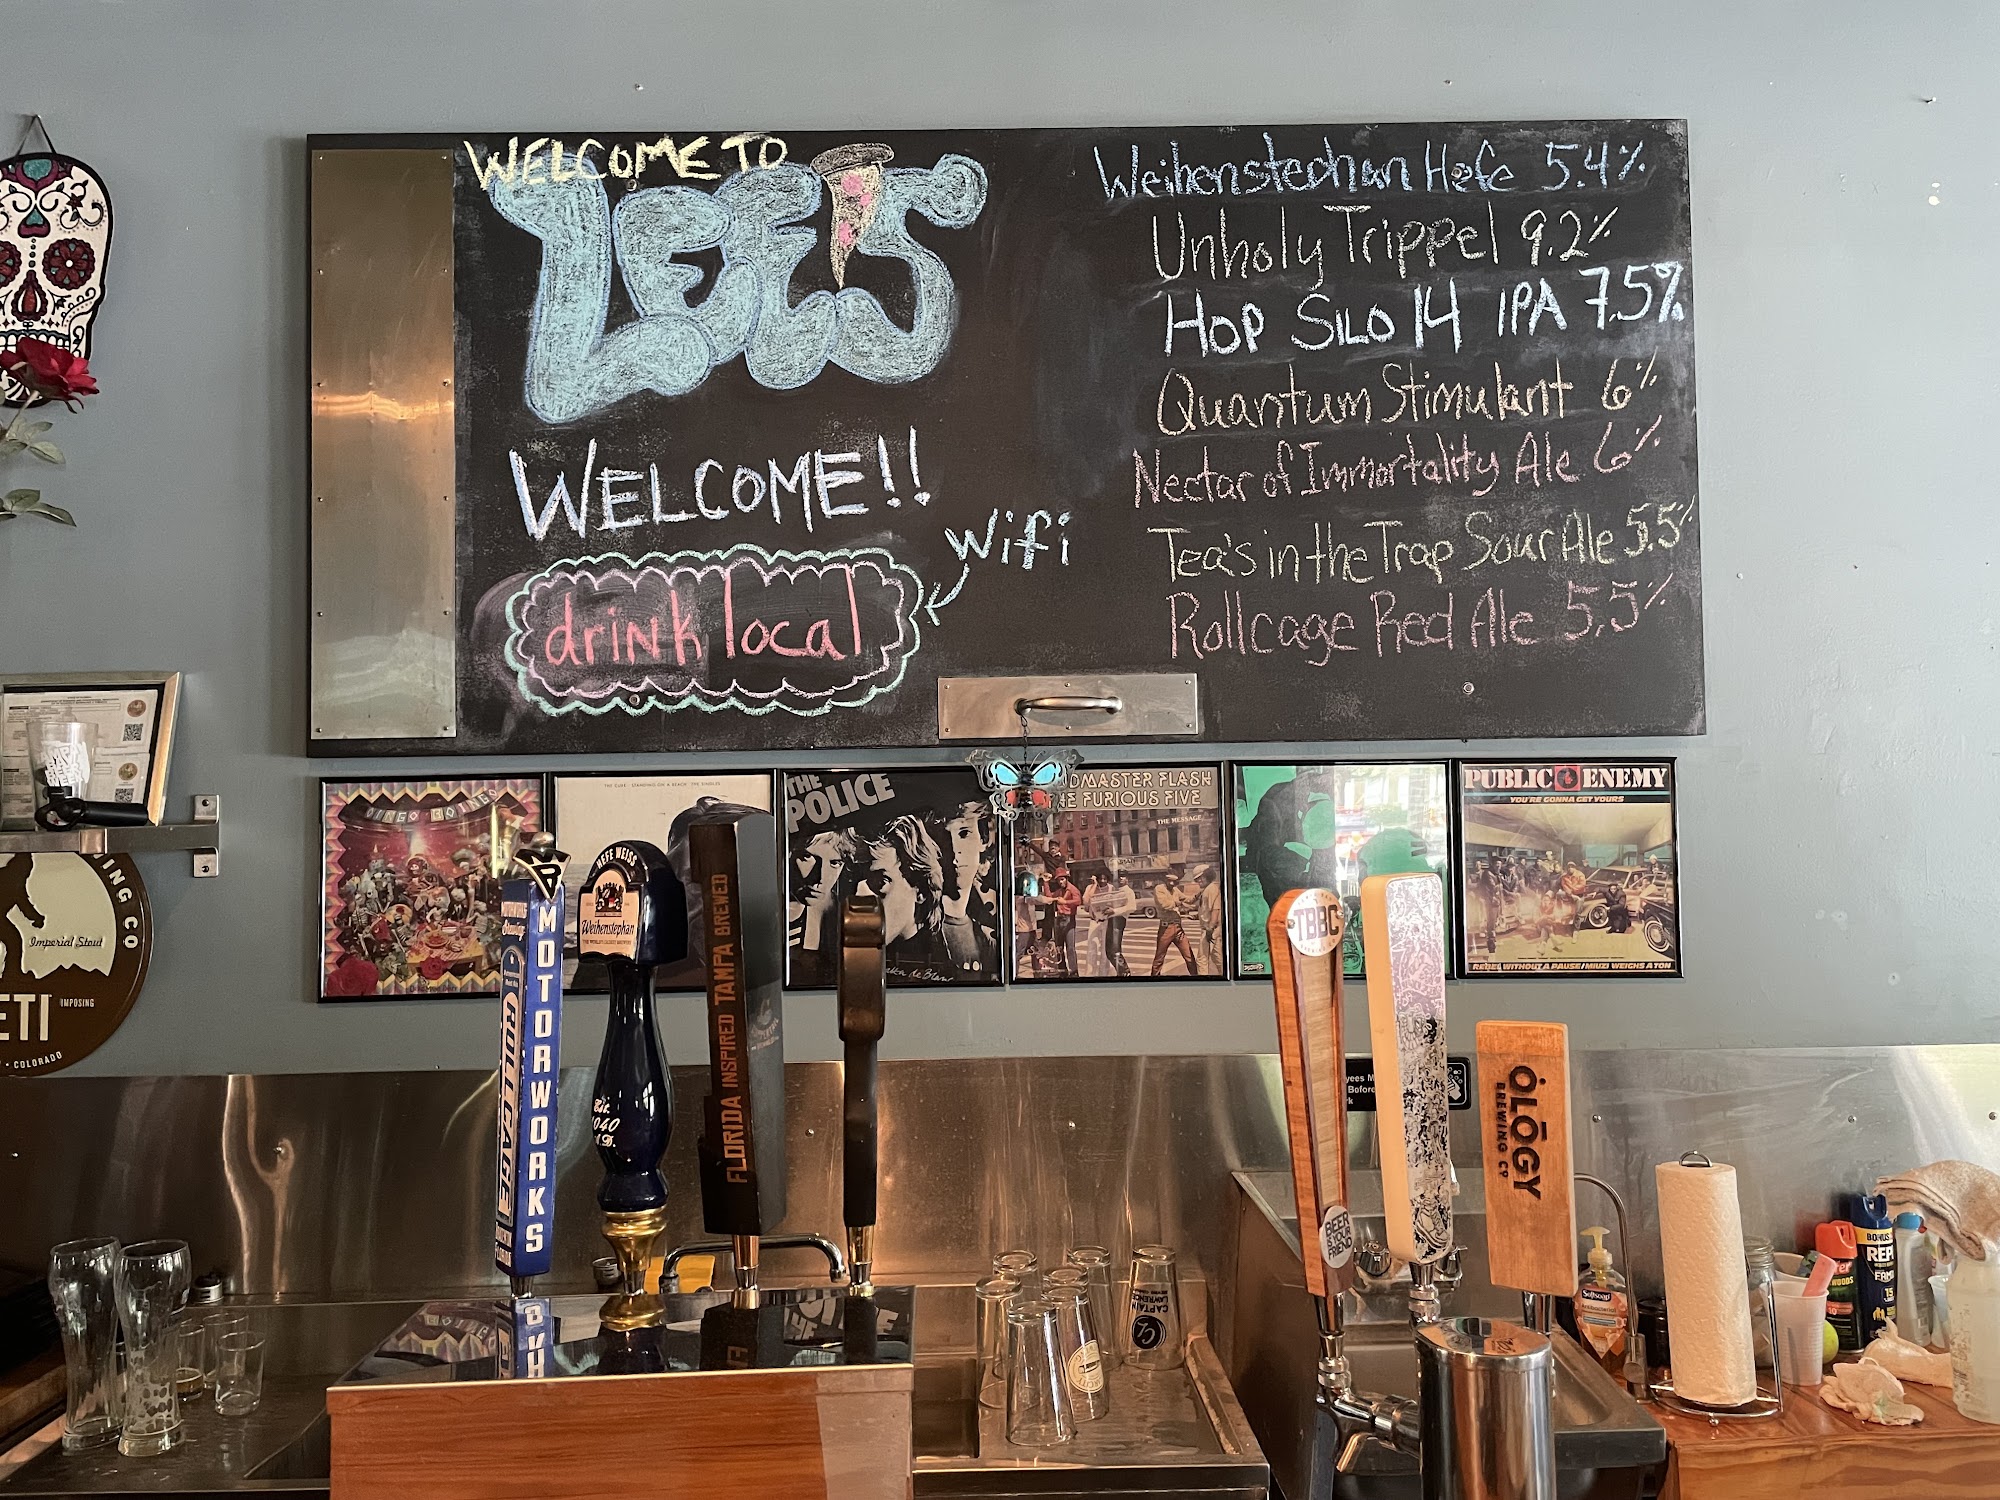 WELCOME TO
LEE'S
WELCOME!!
Wifi
drink local
Weihenstephan Hefe 5.4%
Unholy Trippel 9.2%
HOP SILO 14 IPA 7.5%
Quantum Stimulant 6%
Nectar of Immortality Ale 6%
Tea's in the Trap Sour Ale 5.5%
Rollcage Red Ale 5.5%
OINGO BOINGO
THE CURE STANDING ON A BEACH THE SINGLES
THE
POLICE
DMASTER FLASH
THE FURIOUS FIVE
THE MESSAGE
PUBLIC ENEMY
YOU'RE GONNA GET YOURS
REBEL WITHOUT A PAUSE/MIUZI WEIGHS A TON
ING CO
Imperial Stout
ETI
IMPOSING
COLORADO
MOTORWORKS
ROLLCAGE
HEFE WEISS
Weihenstephan
Est.
1040
A.D.
FLORIDA INSPIRED TAMPA BREWED
TBBC
BEER
IS YOUR
FRIEND
OLOGY
BREWING CO
yees M
Befor
rk
CAPTAIN
LAWRENCE
CL
Softsoap
Antibacterial
BONUS
REPE
FAM
15
WOODS